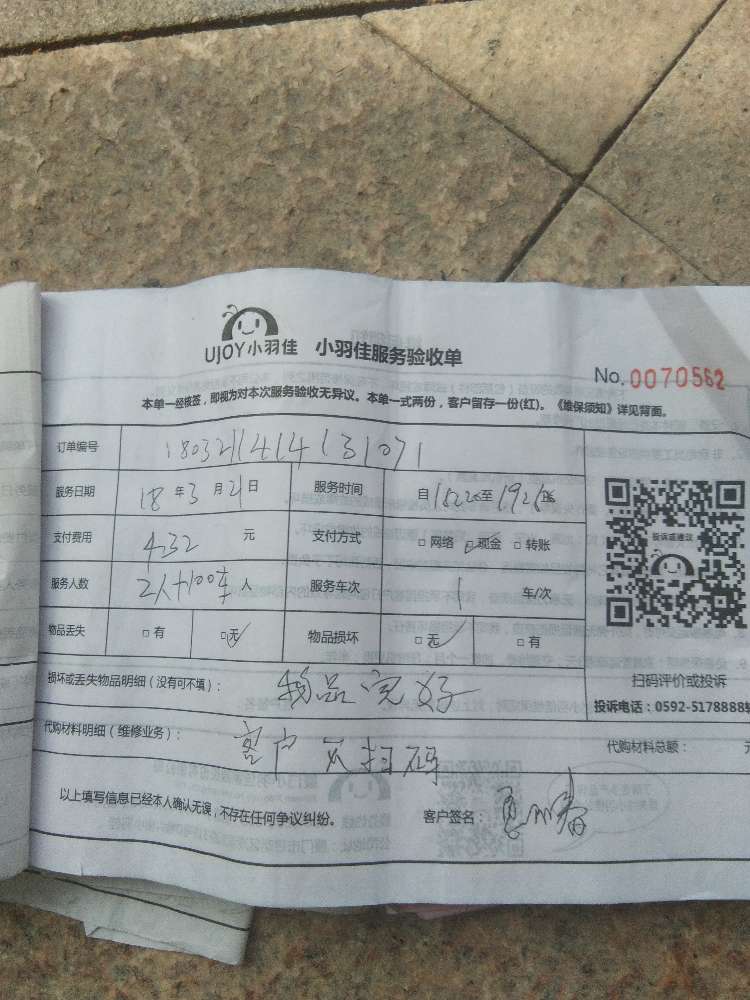 UJOY小羽佳 小羽佳服务验收单
No.0070562
本单一经核签，即视为对本次服务验收无异议。本单一式两份，客户留存一份(红)。《维保须知》详见背面。
订单编号 1803211414131071
服务日期 18 年 3 月 21 日 服务时间 自 至
支付费用 432 元 支付方式 □ 网络 □ 现金 □ 转账
服务人数 2人+100车 人 服务车次 1 车/次
物品丢失 □ 有 □ 无 物品损坏 □ 无 □ 有
扫码评价或投诉
损坏或丢失物品明细（没有可不填）： 物品完好
投诉电话：0592-5178888
代购材料明细（维修业务）： 客户不扫码
代购材料总额： 元
以上填写信息已经本人确认无误，不存在任何争议纠纷。 客户签名：
投诉或建议